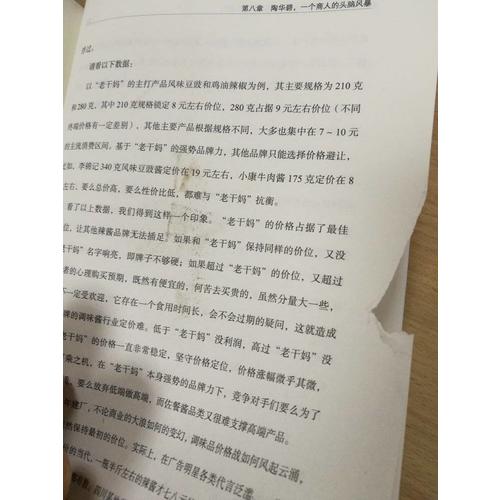 第八章 陶华碧，一个商人的头脑风暴
请看以下数据：
以“老干妈”的主打产品风味豆豉和鸡油辣椒为例，其主要规格为210克
和280克，其中210克规格锁定8元左右价位，280克占据9元左右价位（不同
终端价格有一定差别），其他主要产品根据规格不同，大多也集中在7~10元
的主流消费区间。基于“老干妈”的强势品牌力，其他品牌只能选择价格避让，
比如，李锦记340克风味豆豉酱定价在19元左右，小康牛肉酱175克定价在8
左右，要么总价高，要么性价比低，都难与“老干妈”抗衡。
看了以上数据，我们得到这样一个印象。“老干妈”的价格占据了最佳
位，让其他辣酱品牌无法插足。如果和“老干妈”保持同样的价位，又没
干妈”名字响亮，即牌子不够硬；如果超过“老干妈”的价位，又超过
者的心理购买预期，既然有便宜的，何苦去买贵的，虽然分量大一些，
不一定受欢迎，它存在一个食用时间长，会不会过期的疑问，这就造成
牌的调味酱行业定价难。低于“老干妈”没利润，高过“老干妈”没
“老干妈”的价格一直非常稳定，坚守价格定位，价格涨幅微乎其微，
乘之机，在“老干妈”本身强势的品牌力下，竞争对手们要么为了
，要么放弃低端做高端，而佐餐酱品类又很难支撑高端产品。
建厂，不论商业的大浪如何的变幻，调味品价格战如何风起云涌，
然保持最初的价位。实际上，在广告明星各类代言泛滥
的当代，一瓶半斤左右的辣酱才七八元